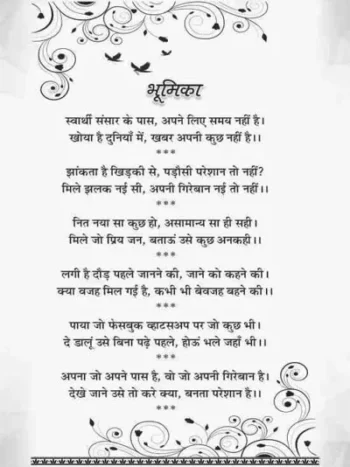 भूमिका
स्वार्थी संसार के पास, अपने लिए समय नहीं है।
खोया है दुनियाँ में, खबर अपनी कुछ नहीं है।।
***
झांकता है खिड़की से, पड़ौसी परेशान तो नहीं?
मिले झलक नई सी, अपनी गिरेबान नई तो नहीं।।
***
नित नया सा कुछ हो, असामान्य सा ही सही।
मिले जो प्रिय जन, बताऊं उसे कुछ अनकही।।
***
लगी है दौड़ पहले जानने की, जाने को कहने की।
क्या वजह मिल गई है, कभी भी बेवजह बहने की।।
***
पाया जो फेसबुक व्हाटसअप पर जो कुछ भी।
दे डालूं उसे बिना पढ़े पहले, होऊं भले जहाँ भी।।
***
अपना जो अपने पास है, वो जो अपनी गिरेबान है।
देखे जाने उसे तो करे क्या, बनता परेशान है।।
***